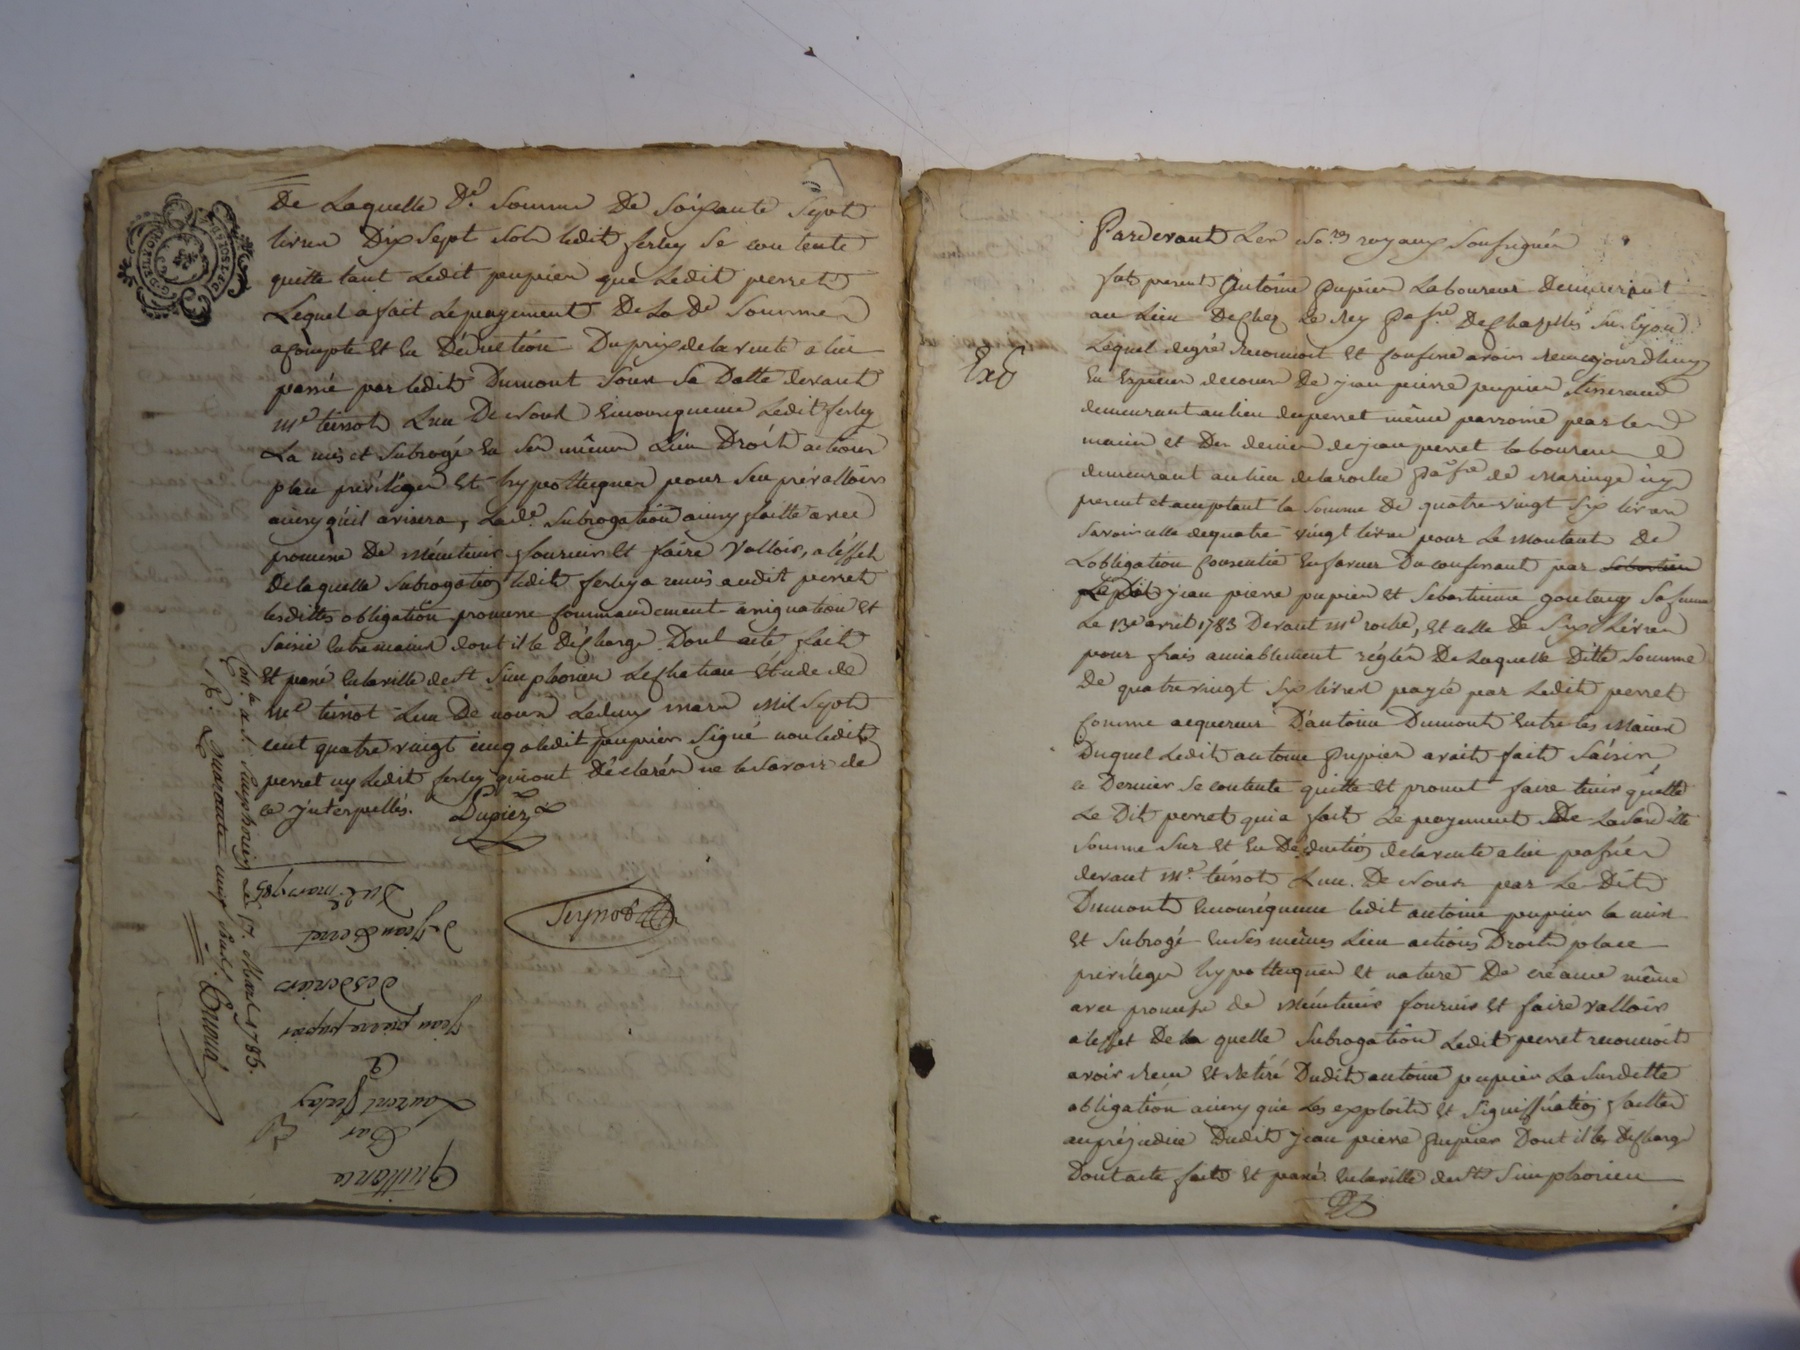 De Laquelle De. Somme De Soixante Sept
livres Dix Sept sols ledit ferley Se contente
quitte tant Ledit pupier que Ledit perret
Lequel a fait Le payement De La De Somme
acompte Et En Déduction Du prix de la vente a lui
passée par ledit Dumont Sous Sa Datte devant
Me tersot L'un De nous Enconsequence Ledit ferley
La mis et Subrogé En Ses mêmes Lieu Droit actions
place privileges Et hypotheques pour S'en prévalloir
ainsy qu'il avisera, La de. Subrogation ainsy faitte avec
promesse De Maintenir fournir Et faire Valloir, a L'effet
De laquelle Subrogation ledit ferley a remis audit perret
lesdittes obligation promesse Commandement assignation Et
Saisie Entre mains dont il le Décharge. Dont acte fait
Et passé En la ville de St Simphorien Le Chateau Etude de
Me tersot L'un De nous Le deux mars Mil Sept
cent quatre vingt cinq a ledit pupier Signé non ledit
perret ny Ledit ferley qui ont Déclarés ne le Savoir de
ce Interpellés. Pupier
Tersot
a St. Simphorien Le 17. Mars 1785.
R. Quarante cinq Sols.
Quittance
Par
Laurent ferlay
A
Jean pierre pupier
Des Deniers
De Jean Perret
Du 2 mars 1785
Pardevant Les nores royaux Soussignés
fut present Antoine Pupier Laboureur Demeurant
au Lieu De chez Le Rey De Chazelles Sur Lyon
Lequel de gré reconnoit Et Confesse avoir reçu ajourd'huy
En Espèces de cours De jean pierre pupier tisserand
demeurant au lieu du perret même parroisse par les
mains et Des deniers de jean perret laboureur
demeurant au lieu de la roche de Maringe icy
present et acceptant la Somme De quatre vingt Six livres
Savoir celle de quatre vingt livres pour Le Montant De
L'obligation Consentie En faveur Du confessant par Sebastien
Ledit jean pierre pupier Et Sebastienne gouteny Sa femme
Le 13e avril 1783 Devant Me roche, Et celle De Six Livres
pour frais amiablement réglés De Laquelle Ditte Somme
De quatre vingt Six livres payée par Ledit perret
Comme acquereur D'antoine Dumont Entre les Mains
Duquel Ledit antoine Pupier avait fait Saisir
ce Dernier Se contente quitte Et promet faire tenir quitte
Le Dit perret qui a fait Le payement De La Sus Ditte
Somme Sur Et En Deduction de la vente a lui passée
devant Me. tersot L'un. De nous par Le Dit
Dumont Enconséquence ledit antoine pupier la mis
Et Subrogé En Ses mêmes Lieu actions Droits place
privileges hypotheques Et nature De créance même
avec promesse de Maintenir fournir Et faire valloir
a L'effet De la quelle Subrogation Ledit perret reconnoit
avoir Reçu Et Retiré Dudit antoine pupier La Susditte
obligation ainsy que Les exploits Et Signiffication faittes
au préjudice Dudit jean pierre pupier Dont il les Decharge
Dont acte fait Et passé En la ville de St Simphorien